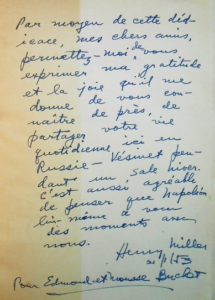 Par moyen de cette déd-
icace, mes chers amis,
permettez-moi, de vous
exprimer ma gratitude
et la joie qu'il me
donne de vous con-
naître de près, de
partager votre vie
quotidienne, ici en
Russie-Vésinet pen-
dant un sale hiver.
C'est aussi agréable
de penser que Napoléon
lui-même a
des moments avec
nous.
Henry Miller
/1/53
Pour Edmond et
Buchet